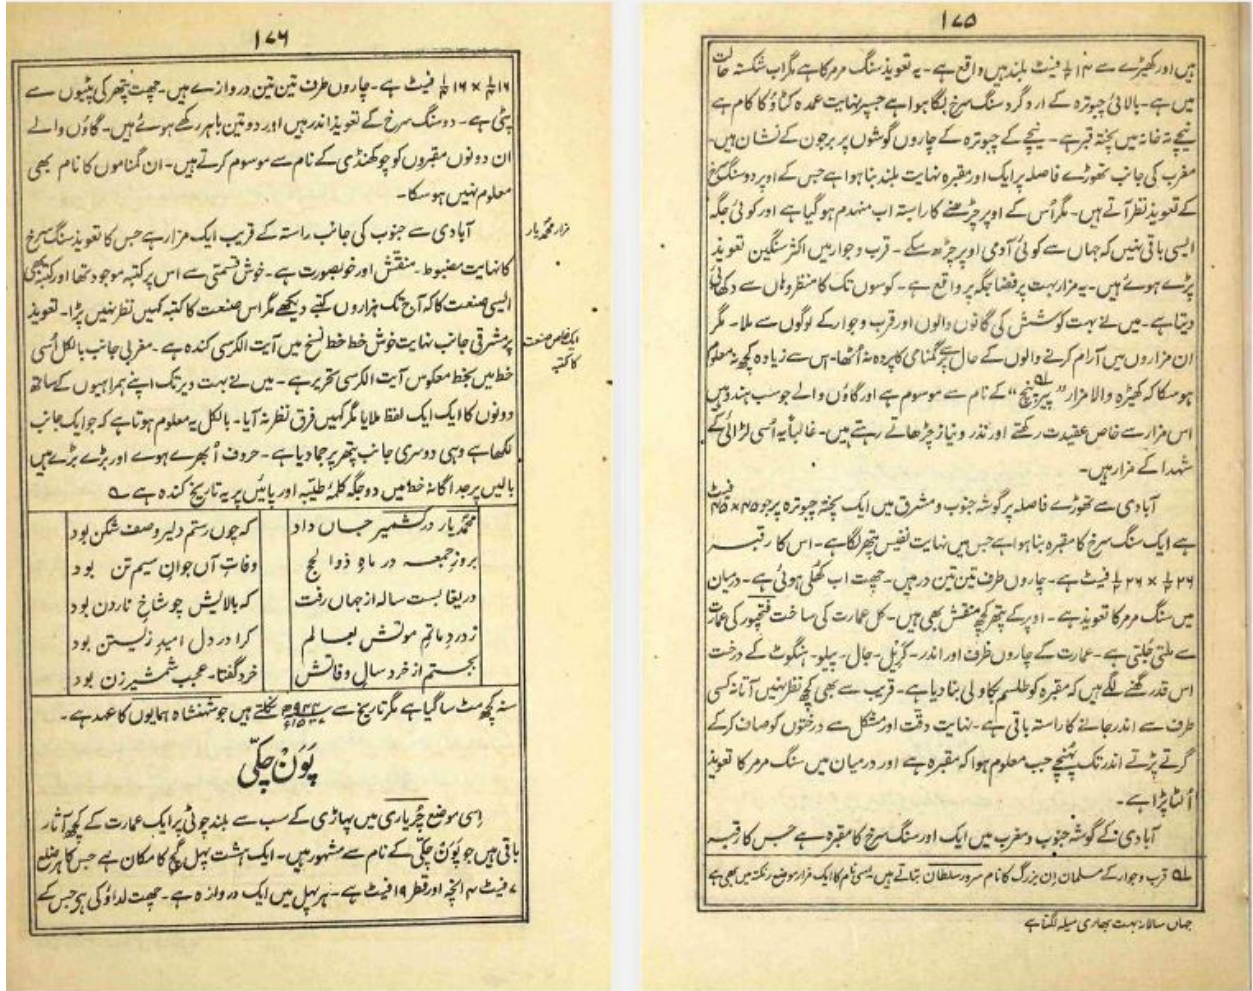 ۱۷۵
ہیں اور کھیڑے سے ۱۴ ۱/۲ فیٹ بلند ہیں واقع ہے۔ یہ تعویذ سنگ مرمر کا ہے مگر اب شکستہ حالت
میں ہے۔ بالائی چبوترہ کے ارد گرد سنگ سرخ لگا ہوا ہے جسپر نہایت عمدہ کٹاؤ کا کام ہے
نیچے تہ خانہ میں پختہ قبر ہے۔ نیچے کے چبوترہ کے چاروں گوشوں پر برجون کے نشان ہیں۔
مغرب کی جانب تھوڑے فاصلہ پر ایک اور مقبرہ نہایت بلند بنا ہوا ہے جس کے اوپر دو سنگ سرخ
کے تعویذ نظر آتے ہیں۔ مگر اُس کے اوپر چڑھنے کا راستہ اب منہدم ہو گیا ہے اور کوئی جگہ
ایسی باقی نہیں کہ جہاں سے کوئی آدمی اوپر چڑھ سکے۔ قرب و جوار میں اکثر سنگین تعویذ
پڑے ہوئے ہیں۔ یہ مزار بہت پر فضا جگہ پر واقع ہے۔ کوسوں تک کا منظر وہاں سے دکھائی
دیتا ہے۔ میں نے بہت کوشش کی گانوں والوں اور قرب و جوار کے لوگوں سے ملا۔ مگر
ان مزاروں میں آرام کرنے والوں کے حال پر سے گمنامی کا پردہ نہ اُٹھا۔ اس سے زیادہ کچھ نہ معلوم
ہو سکا کہ کھیڑہ والا مزار "پیر پنچ" کے نام سے موسوم ہے اور گاؤں والے جو سب ہندو ہیں
اس مزار سے خاص عقیدت رکھتے اور نذر و نیاز چڑھاتے رہتے ہیں۔ غالباً یہ اُسی لڑائی کے
شہدا کے مزار ہیں۔
آبادی سے تھوڑے فاصلہ پر گوشہ جنوب و مشرق میں ایک پختہ چبوترہ پر جو ۴۵ × ۴۵ فیٹ
ہے ایک سنگ سرخ کا مقبرہ بنا ہوا ہے جس میں نہایت نفیس پتھر لگا ہے۔ اس کا رقبہ
۲۶ ۱/۲ × ۲۶ ۱/۲ فیٹ ہے۔ چاروں طرف تین تین در ہیں۔ چھت اب کھلی ہوئی ہے۔ درمیان
میں سنگ مرمر کا تعویذ ہے۔ اوپر کے پتھر کچھ منقش بھی ہیں۔ کل عمارت کی ساخت فتحپور کی عمارت
سے ملتی جُلتی ہے۔ عمارت کے چاروں طرف اور اندر۔ کریل۔ جال۔ پیلو۔ ہنگوٹ کے درخت
اس قدر گھنے لگے ہیں کہ مقبرہ کو طلسم بکاولی بنا دیا ہے۔ قریب سے بھی کچھ نظر نہیں آتا نہ کسی
طرف سے اندر جانے کا راستہ باقی ہے۔ نہایت دقت اور مشکل سے درختوں کو صاف کر کے
گرتے پڑتے اندر تک پہنچے جب معلوم ہوا کہ مقبرہ ہے اور درمیان میں سنگ مرمر کا تعویذ
اُلٹا پڑا ہے۔
آبادی کے گوشہ جنوب و مغرب میں ایک اور سنگ سرخ کا مقبرہ ہے جس کا رقبہ
لہ قرب و جوار کے مسلمان اِن بزرگ کا نام سرور سلطان بتاتے ہیں اِسی نام کا ایک مزار موضع رنکتہ میں بھی ہے
جہاں سالانہ بہت بھاری میلہ لگتا ہے
۱۷۶
۱۶ ۱/۲ × ۱۶ ۱/۲ فیٹ ہے۔ چاروں طرف تین تین دروازے ہیں۔ چھت پتھر کی پٹیوں سے
پٹی ہے۔ دو سنگ سرخ کے تعویذ اندر ہیں اور دو تین باہر رکھے ہوئے ہیں۔ گاؤں والے
ان دونوں مقبروں کو چوکھنڈی کے نام سے موسوم کرتے ہیں۔ ان گمناموں کا نام بھی
معلوم نہیں ہو سکا۔
مزار محمد یار
آبادی سے جنوب کی جانب راستہ کے قریب ایک مزار ہے جس کا تعویذ سنگ سرخ
کا نہایت مضبوط۔ منقش اور خوبصورت ہے۔ خوش قسمتی سے اس پر کتبہ موجود تھا اور کتبہ بھی
ایسی صنعت کا کہ آج تک ہزاروں کتبے دیکھے مگر اس صنعت کا کتبہ کہیں نظر نہیں پڑا۔ تعویذ
ایک خاص صنعت
کا کتبہ
پر مشرقی جانب نہایت خوش خط خط نسخ میں آیت الکرسی کندہ ہے۔ مغربی جانب بالکل اُسی
خط میں بخط معکوس آیت الکرسی تحریر ہے۔ میں نے بہت دیر تک اپنے ہمراہیوں کے ساتھ
دونوں کا ایک ایک لفظ ملایا مگر کہیں فرق نظر نہ آیا۔ بالکل یہ معلوم ہوتا ہے کہ جو ایک جانب
لکھا ہے وہی دوسری جانب پتھر پر جما دیا ہے۔ حروف اُبھرے ہوے اور بڑے بڑے ہیں
بالیں پر جداگانہ خط میں دو جگہ کلمۂ طیبہ اور پائیں پر یہ تاریخ کندہ ہے
محمد یار در کشمیر جاں داد کہ چوں رستم دلیر و صف شکن بود
بروز جمعہ در ماہ ذوالحج وفات آں جوان سیم تن بود
دریغا بست سالہ از جہاں رفت کہ بالایش چو شاخ نارون بود
ز درد ماتم موتش بعالم کرا در دل امید زیستن بود
بجستم از خرد سال وفاتش خرد گفتا۔ عجب شمشیر زن بود
سنہ کچھ مٹ سا گیا ہے مگر تاریخ سے نکلتے ہیں جو شہنشاہ ہمایوں کا عہد ہے۔
پَوَنْ چکّی
اِسی موضع چُریاری میں پہاڑی کے سب سے بلند چوٹی پر ایک عمارت کے کچھ آثار
باقی ہیں جو پَوَن چکّی کے نام سے مشہور ہیں۔ ایک ہشت پہل گچ کا مکان ہے جس کا ہر ضلع
۷ فیٹ ۴ انچہ اور قطر ۱۹ فیٹ ہے۔ ہر پہل میں ایک دروازہ ہے۔ چھت لداؤ کی ہے جس کے